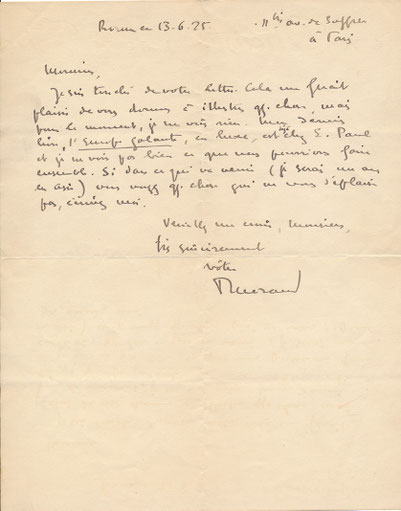 13-6.25
11bis av. de Suffren
à Paris
Monsieur,
Je suis touché de votre lettre. Cela me ferait
plaisir de vous donner à illustrer qq. chose, mais
pour le moment, je ne vois rien. Mon dernier
livre, l'Europe galante, en luxe, est chez E. Paul
et je ne vois pas bien ce que nous pourrions faire
ensemble. Si dans ce qui va venir (je serai un an
en asie) vous voyez qq. chose qui ne vous déplaise
pas, écrivez moi.
Veuillez me croire, Monsieur,
très sincèrement
vôtre
Morand